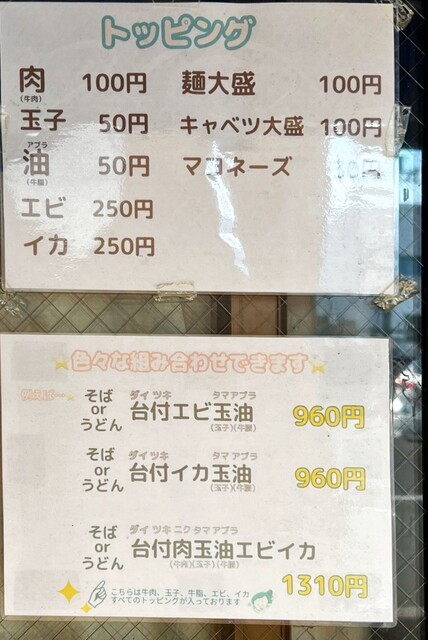 トッピング
肉 100円 麺大盛 100円
(牛肉)
玉子 50円 キャベツ大盛 100円
アブラ
油 50円 マヨネーズ
(牛脂)
エビ 250円
イカ 250円
色々な組み合わせできます
例えばー
そば
or
うどん
ダイ ツキ タマ アブラ
台付エビ玉油 960円
(玉子)(牛脂)
そば
or
うどん
ダイ ツキ タマ アブラ
台付イカ玉油 960円
(玉子)(牛脂)
そば
or
うどん
ダイ ツキ ニク タマ アブラ
台付肉玉油エビイカ
(牛肉)(玉子)(牛脂)
1310円
こちらは牛肉、玉子、牛脂、エビ、イカ
すべてのトッピングが入っております